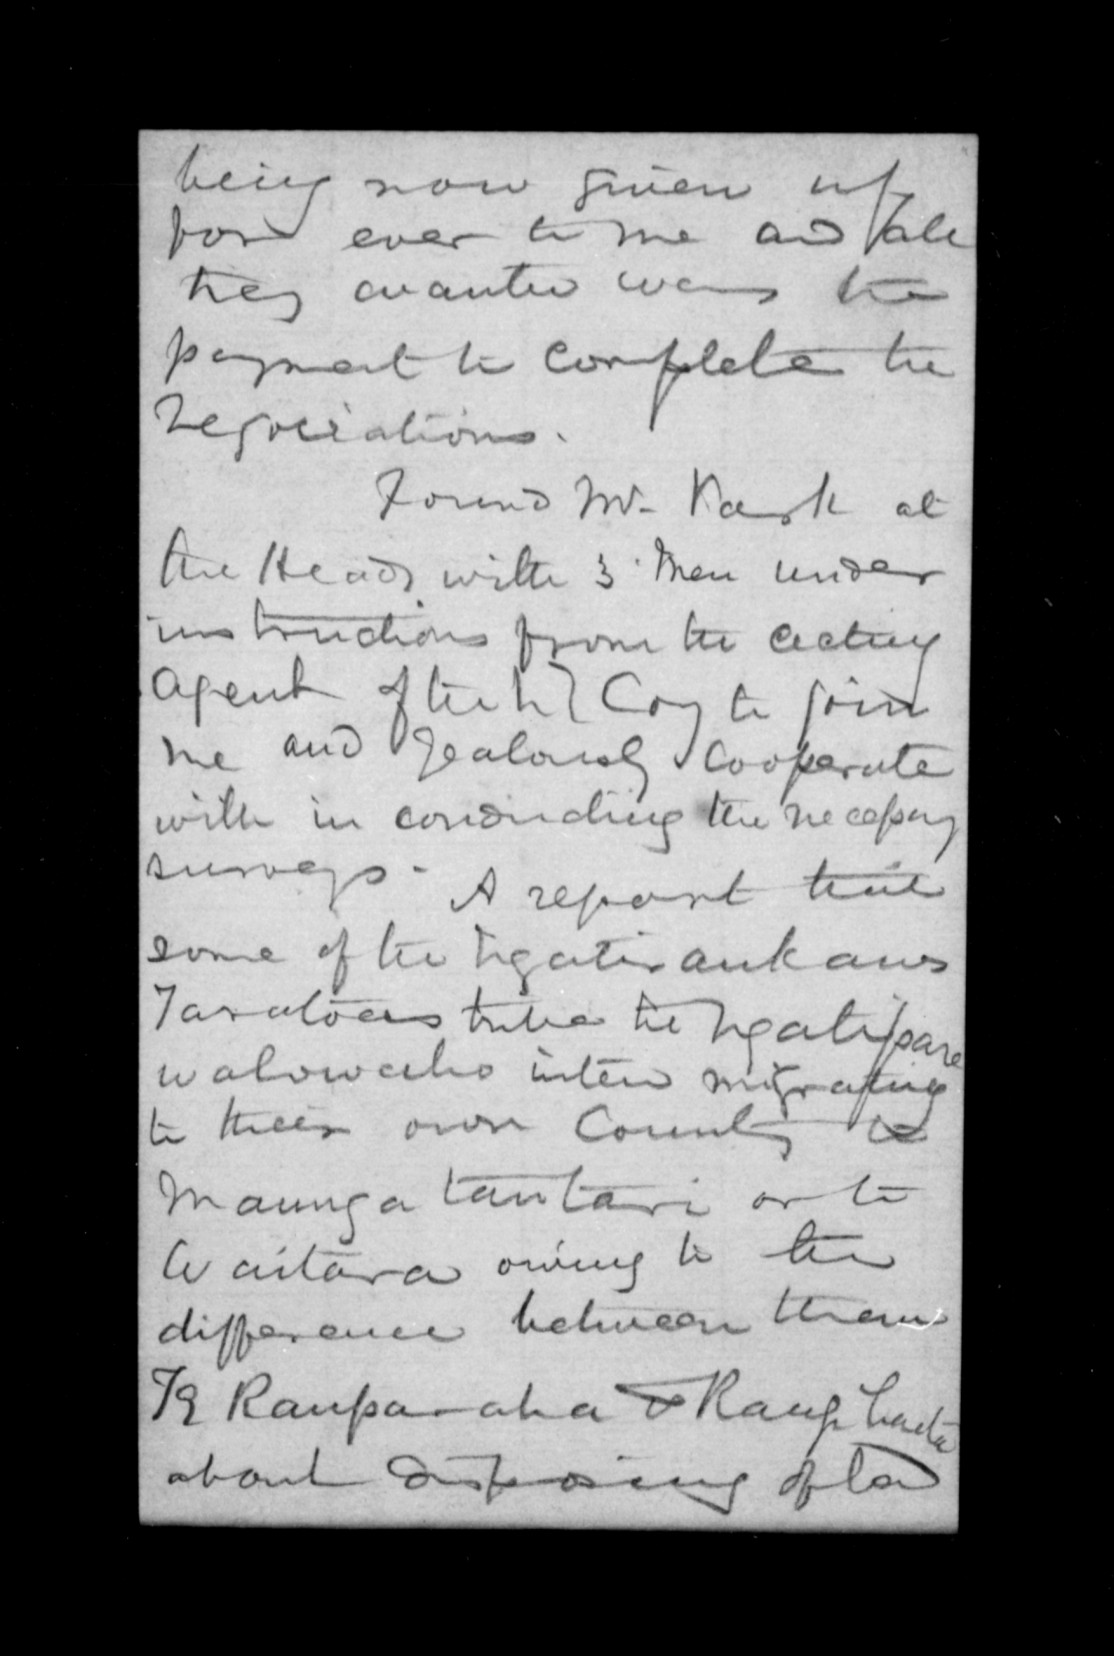 being now given up
for ever to me and all
they wanted was the
payment to complete the
negociations.
Found Mr. Park at
the Heads with 3 men under
instructions from the acting
Agent of the NZ Coy to join
me and zealously cooperate
with in conducting the necessary
surveys - A report that
some of the Ngatiraukawas
Taratoas tribe the Ngatipare
walowaho intend migrating
to their own Country to
Maunga tautari or to
Waitara owing to the
difference between them
Te Rauparaha & Rangihaeta
about disposing of land